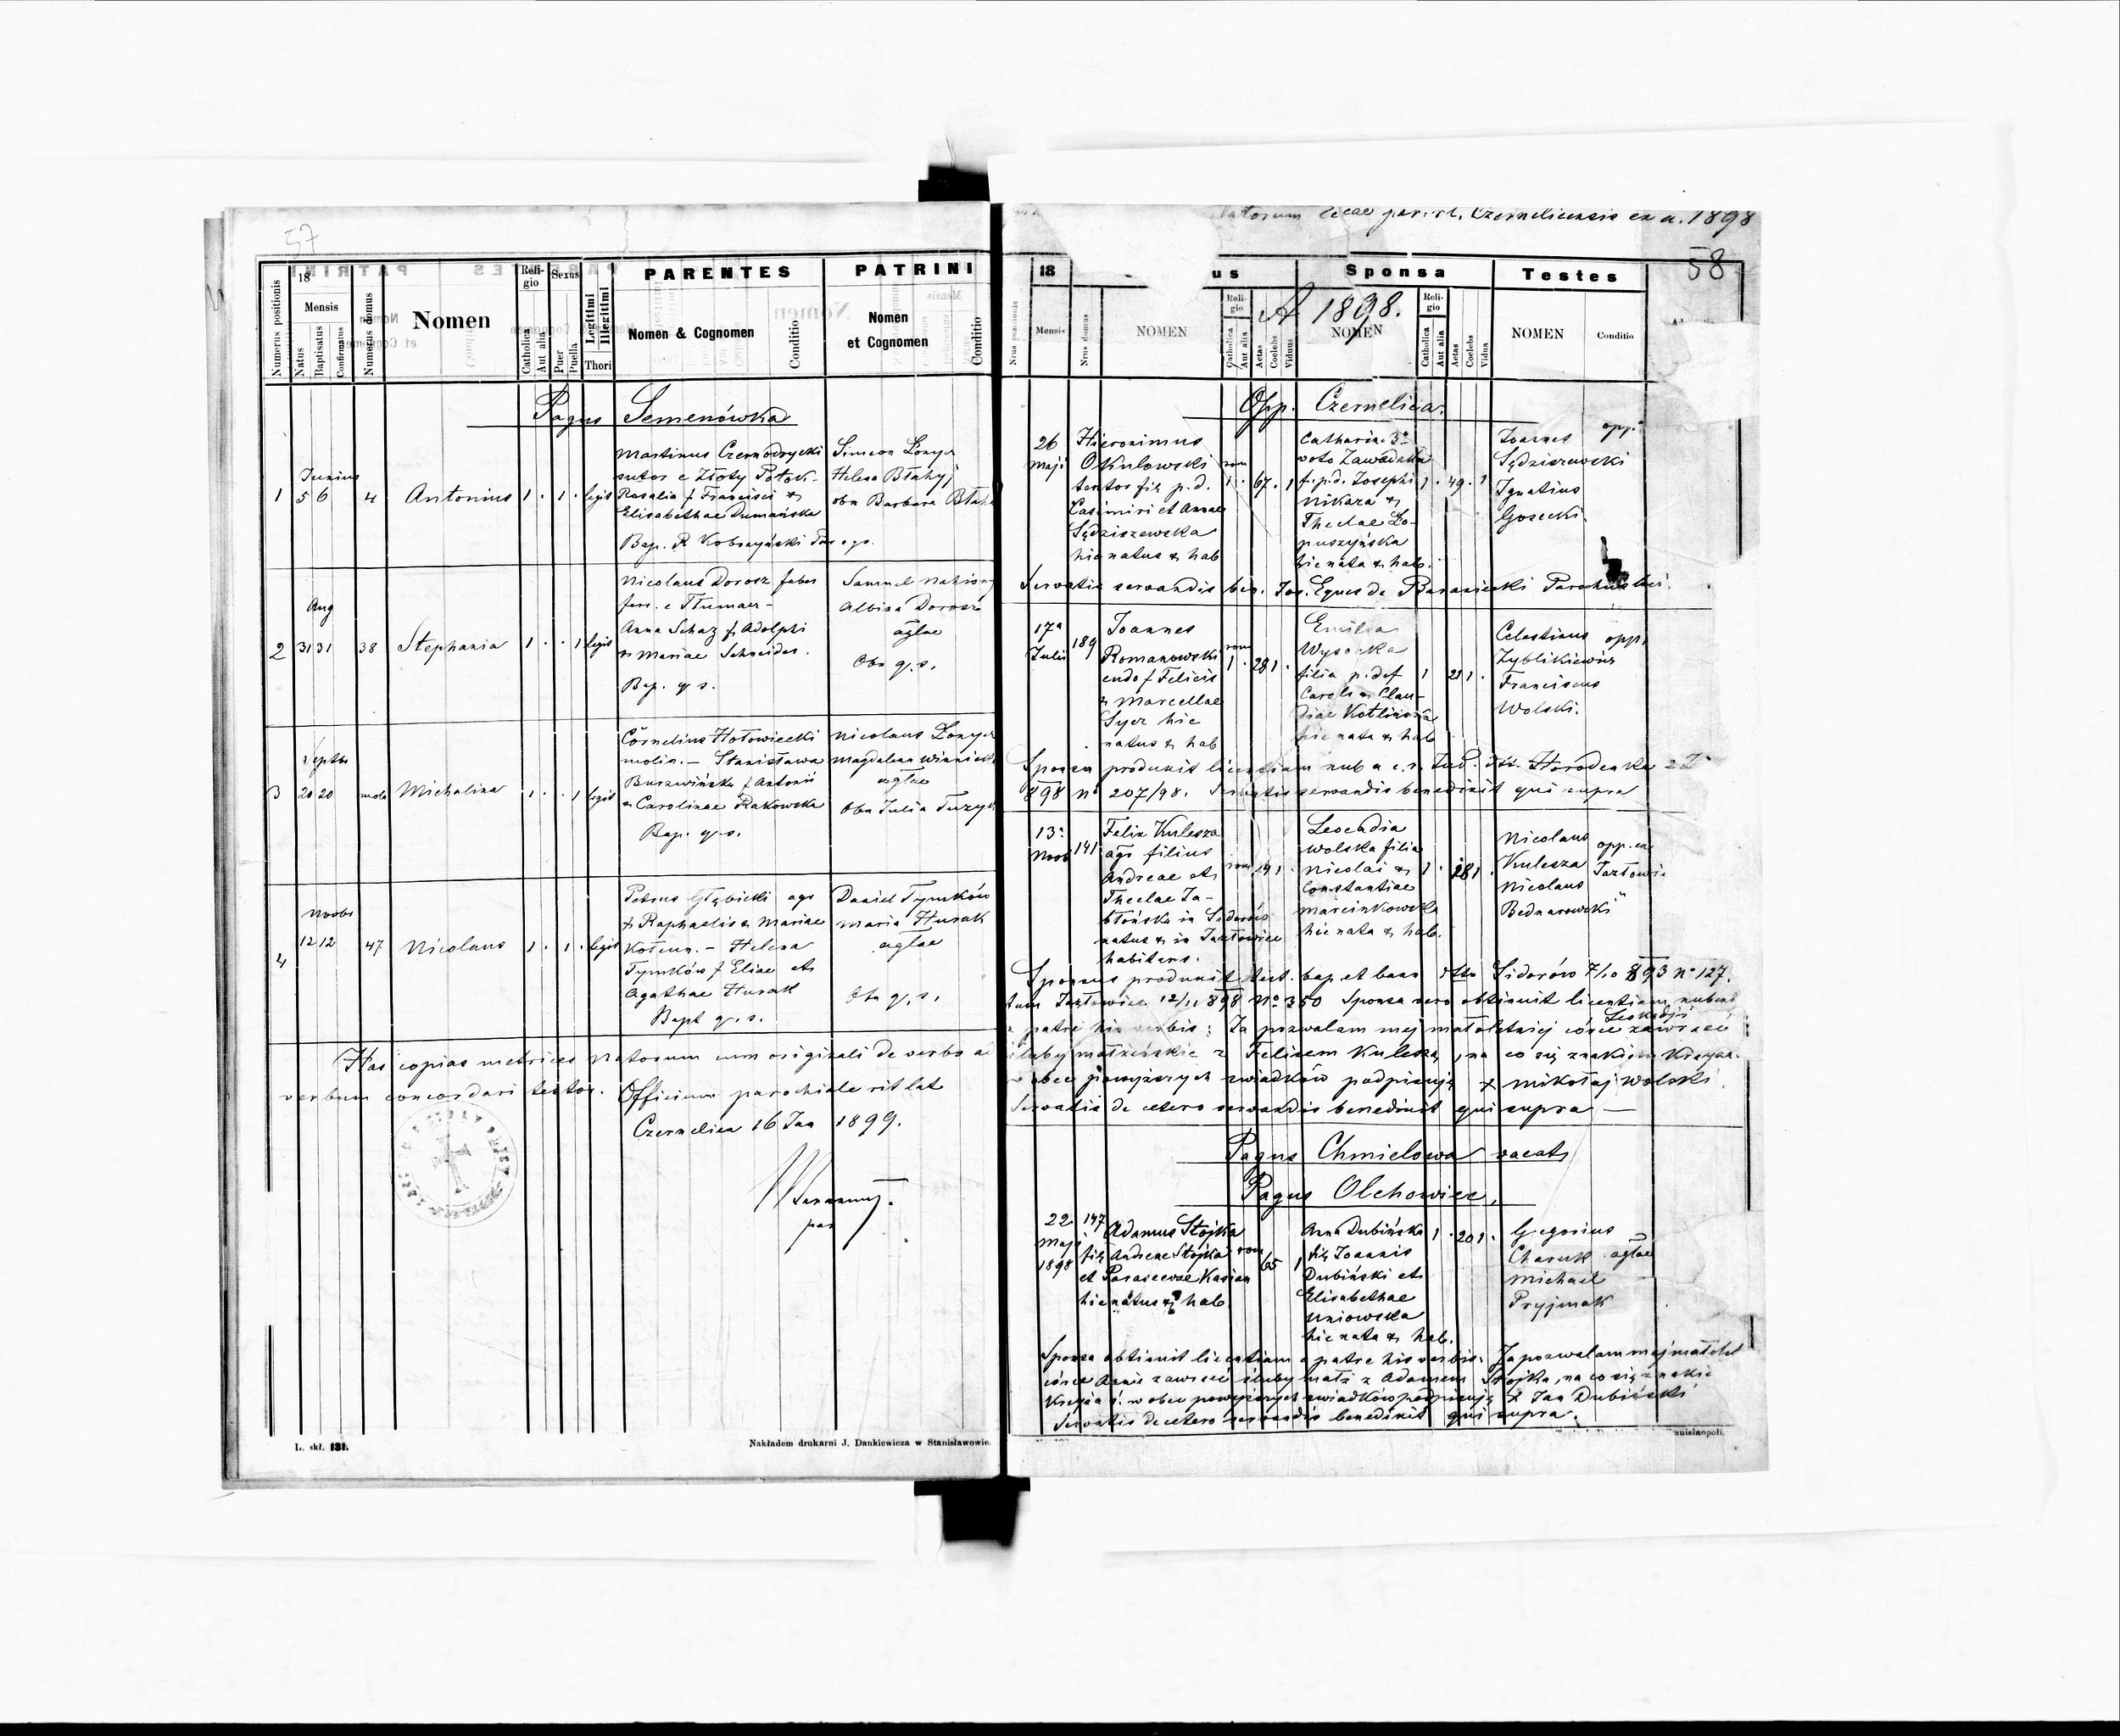 57
18
Numerus positionis
Mensis
Natus
Baptisatus
Confirmatus
Numerus domus
Nomen
Religio
Catholica
Aut alia
Sexus
Puer
Puella
Legitimi
Illegitimi
Thori
PARENTES
Nomen & Cognomen
Conditio
PATRINI
Nomen
et Cognomen
Conditio
Pagus Semenówka
1
Junius
5 6
4
Antonius
1 · 1 · legit
Martinus Czernodrycki
sutor e Złoty Potok -
Rosalia f Francisci &
Elisabethae Dumańska
Bap. R. Kobrzyński
Simeon Łonyc
Helena Błahyj
obn Barbara
2
Aug
31 31
38
Stephania
1 · · 1 legit
Nicolaus Dorosz faber
ferr. e Tłumacz -
Anna Schaz f Adolphi
& Mariae Schneider.
Bap. q. s.
Samuel
Albina Dorosz
aglae
Obn q. s.
3
Septbr
20 20
mola
Michalina
1 · · 1 legit
Cornelius Hołowiecki
molin. - Stanisława
Burzwińska f Antonii
& Carolinae Rakowska
Bap. q. s.
Nicolaus Łonyc
Magdalena
aglae
Obn Julia
4
Novbr
12 12
47
Nicolaus
1 · 1 · legit
Petrus Głębicki agr
f Raphaelis & Mariae
Kołcun. - Helena
Tymków f Eliae et
Agathae Husak
Bapt q. s.
Daniel Tymków
Maria Husak
aglae
Obn q. s.
Has copias metrices natorum cum originali de verbo ad
verbum concordari testor. Officium parochiale rit lat
Czernelica 16 Jan 1899.
par
L. skł. 131.
Nakładem drukarni J. Dankiewicza w Stanisławowie.
latorum par. r. l. Czernelicensis ex a. 1898
58
18
us
Sponsa
Testes
A 1898.
Mensis
Nrus domus
NOMEN
Religio
Catholica
Aut alia
Aetas
Coelebs
Viduus
NOMEN
Religio
Catholica
Aut alia
Aetas
Coelebs
Vidua
NOMEN
Conditio
Opp. Czernelica.
26
Maji
Hieronimus
Okulowski
fil p. d.
Casimiri et Annae
Sędziszewska
hic natus & hab
rom
1 · 67 · 1
Catharina 3°
voto Zawadzka
f. p. d. Josephi
Nikaza &
Theclae Ło-
puszyńska
hic nata & hab.
1 · 49 · 1
Joannes
Sędziszewski
Ignatius
Gosecki.
opp.
Servatis servandis ben. Jos. Eques de Baraniecki Parochus loci.
17a
Julii
189
Joannes
Romanowski
f Felicis
& Marcellae
Syer hic
natus & hab
rom
1 · 28 1 ·
Emilia
Wysocka
filia p. def
Caroli & Clau-
diae
hic nata & hab
1 21 1 ·
Celestinus
Zyblikiewicz
Franciscus
Wolski.
opp.
Sponsa produxit licentiam nub a c. r. Jud. Horodenka
898 n° 207/98. Servatis servandis benedixit qui supra
13a
Novb
141
Felix Kulesza
agr filius
Andreae et
Theclae Ja-
błońska in Sidorów
natus & in Jazłowice
habitans.
rom 24 1
Leocadia
Wolska filia
Nicolai &
Constantiae
Marcinkowska
hic nata & hab.
1 · 18 1 ·
Nicolaus
Kulesza
Nicolaus
Bednarowski
opp. ex
Sponsus produxit test. bap et bann Sidorów 7/10 893 n° 127.
Jazłowice 12/11 898 N° 350 Sponsa vero obtinuit licentiam nubendi
a patre his verbis: Ja pozwalam mej małoletniej córce Leokadji zawrzeć
śluby małżeńskie z Felixem Kuleszą, na co się znakiem krzyża
w obec powyższych świadków podpisuję + Mikołaj Wolski.
Servatis de cetero servandis benedixit qui supra —
Pagus Chmielowa vacat
Pagus Olchowiec,
22
Maji
1898
147
Adamus Stojka
fil Andreae Stojka
et Parascevae Kasian
hic natus & hab
rom
65 1
Anna Dubińska
fil Joannis
Dubiński et
Elisabethae
Uniowska
hic nata & hab.
1 · 20 1 ·
Gregorius
Charuk
Michael
Pryjmak
aglae
Sponsa obtinuit licentiam a patre his verbis: Ja pozwalam mej małolet
córce Annie zawrzeć śluby małż z Adamem Stojka, na co się znakie
krzyża w obec powyższych świadków podpisuję + Jan Dubiński
Servatis de cetero servandis benedixit qui supra.
anislaopoli.